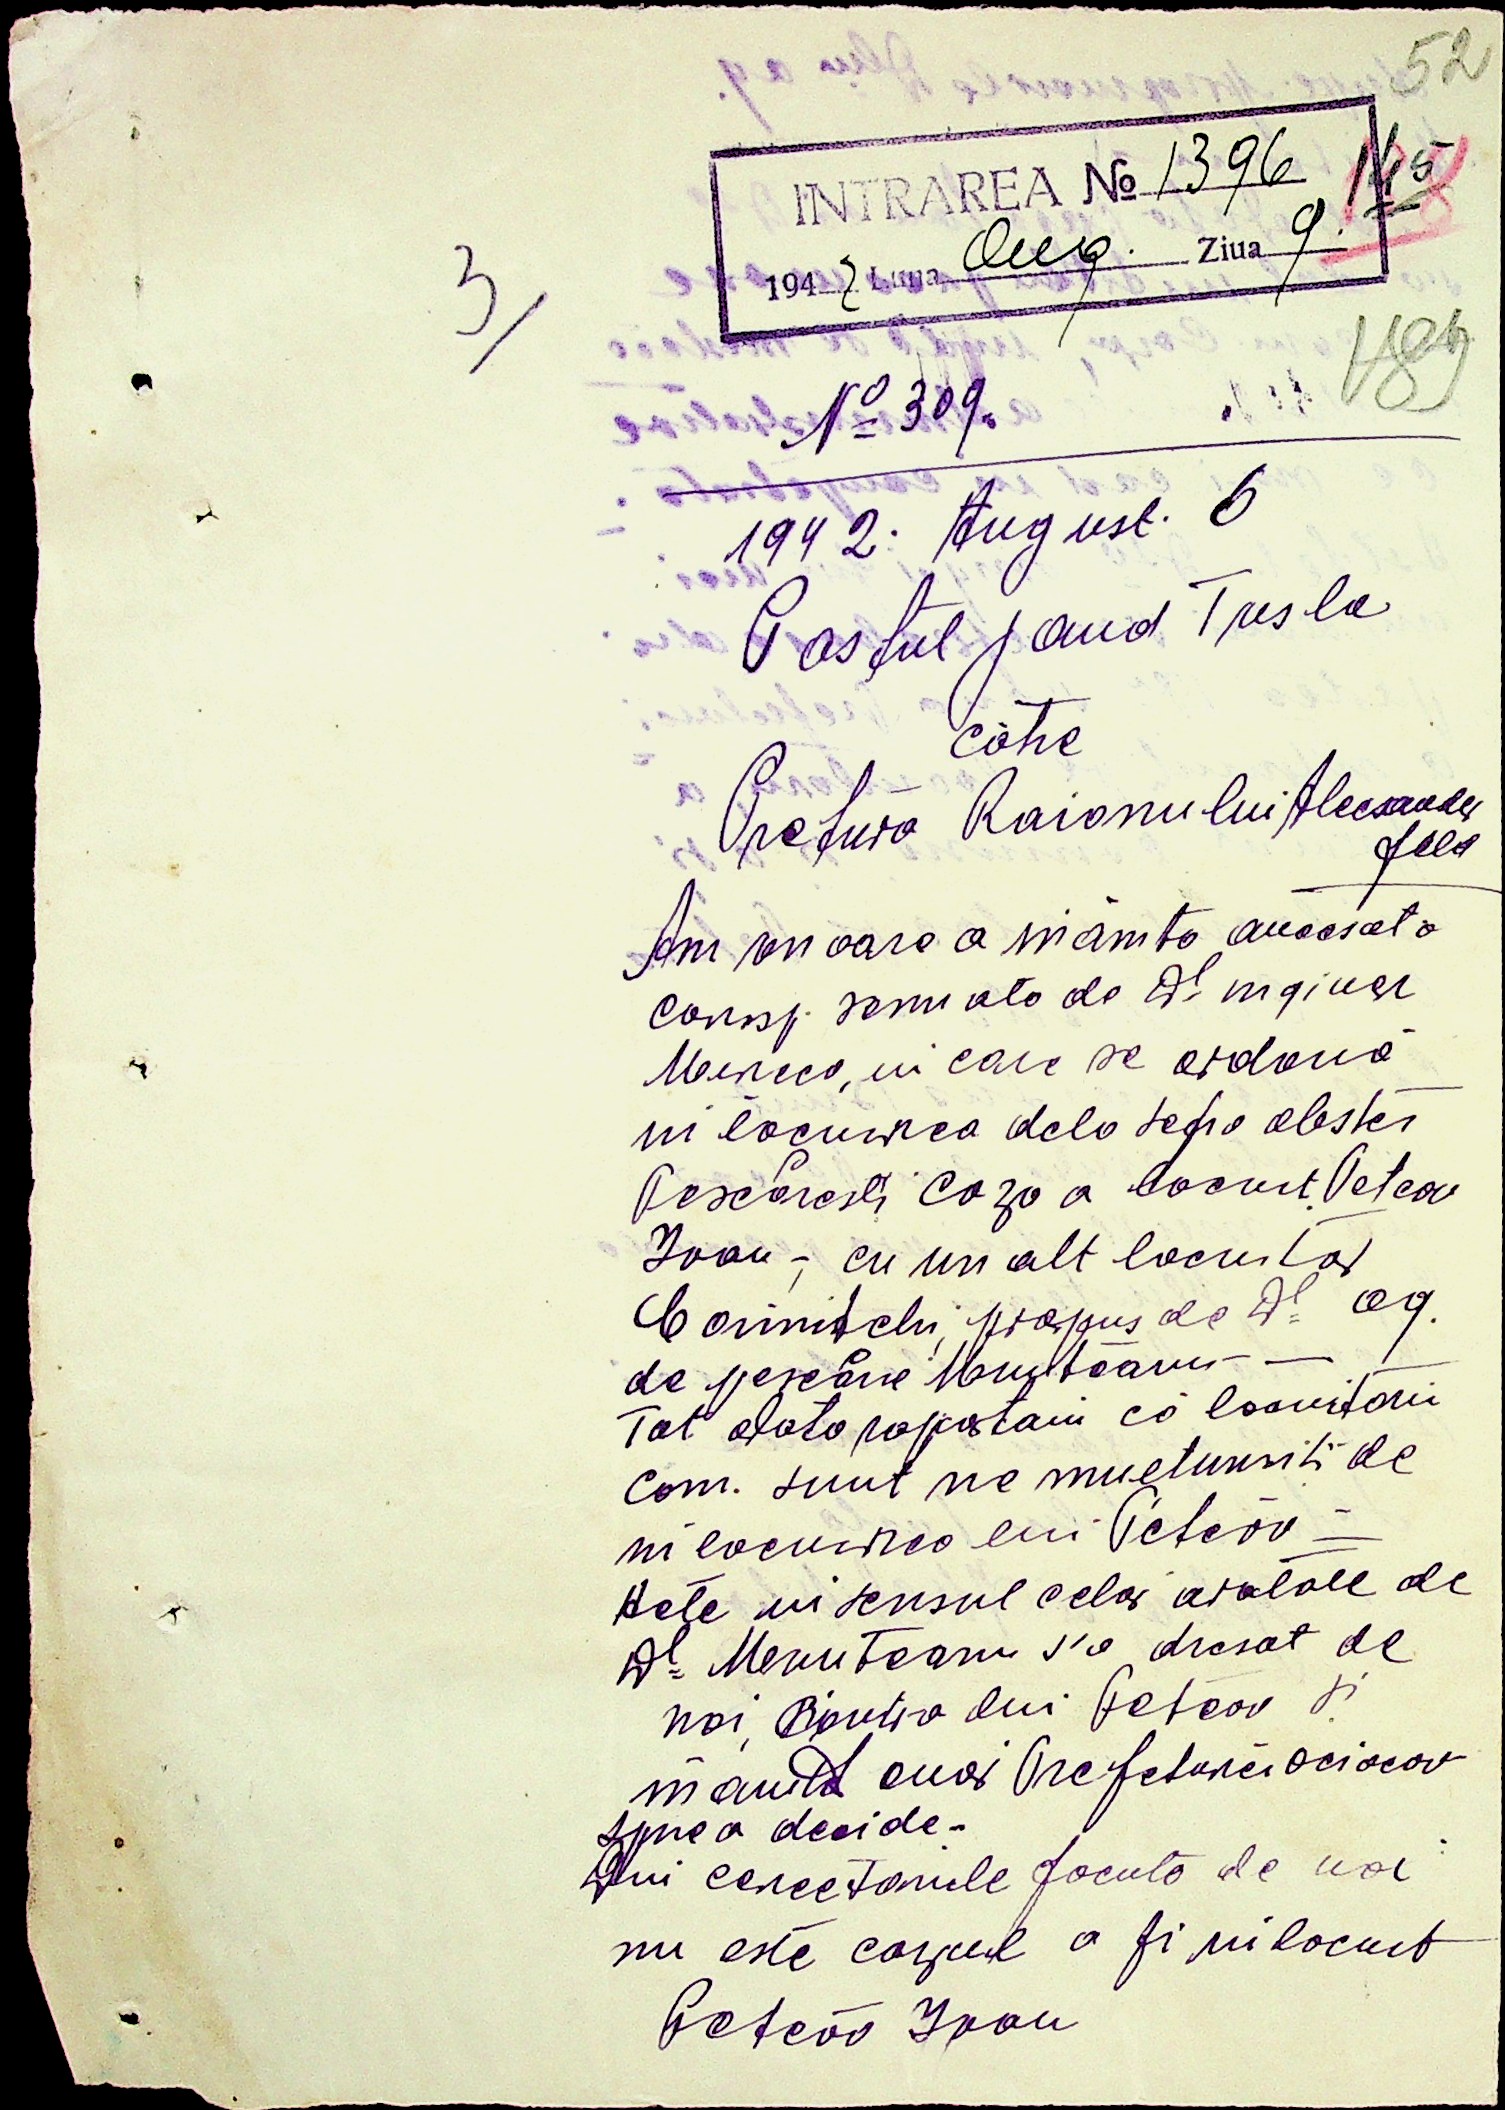 52
INTRAREA No 1396
145
1942 Luna Aug. Ziua 9.
3/
489
No 309.
1942. August. 6
Postul jand Trsla
către
Pretura Raionului Alecsander
feld
Am onoare a înainta anecsata
coresp. semnata de Dl inginer
Mircea, in care se ordonă
inlocuirea dela sefia
Pescăresti Caza a locuit. Petcov
Ivan -, cu un alt locuitor
propus de Dl ag.
de pescărie Munteanu -
Tot odata raportam că locuitorii
com. sunt ne multumiti de
inlocuirea lui Petcov =
Acte in sensul celor aratate de
Dl Munteanu s'a dresat de
noi, contra lui Petcov si
inaintat Prefecturei Oceacov
spre a decide -
Din cercetarile facute de noi
nu este cazul a fi inlocuit
Petcov Ivan